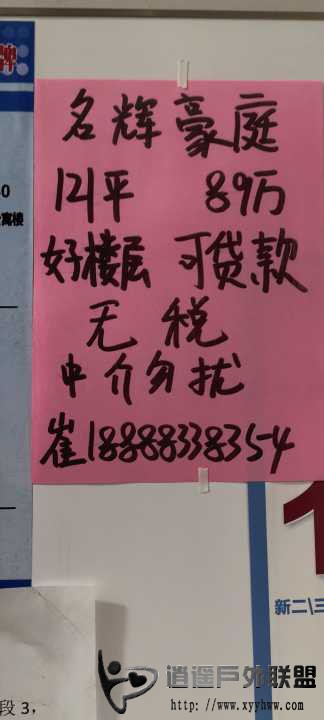 牌
0
寓楼
名辉豪庭
121平 89万
好楼层 可贷款
无税
中介勿扰
崔18888338354
1
新二\三
段3,
逍遥户外联盟
http: www.xyyhww.com